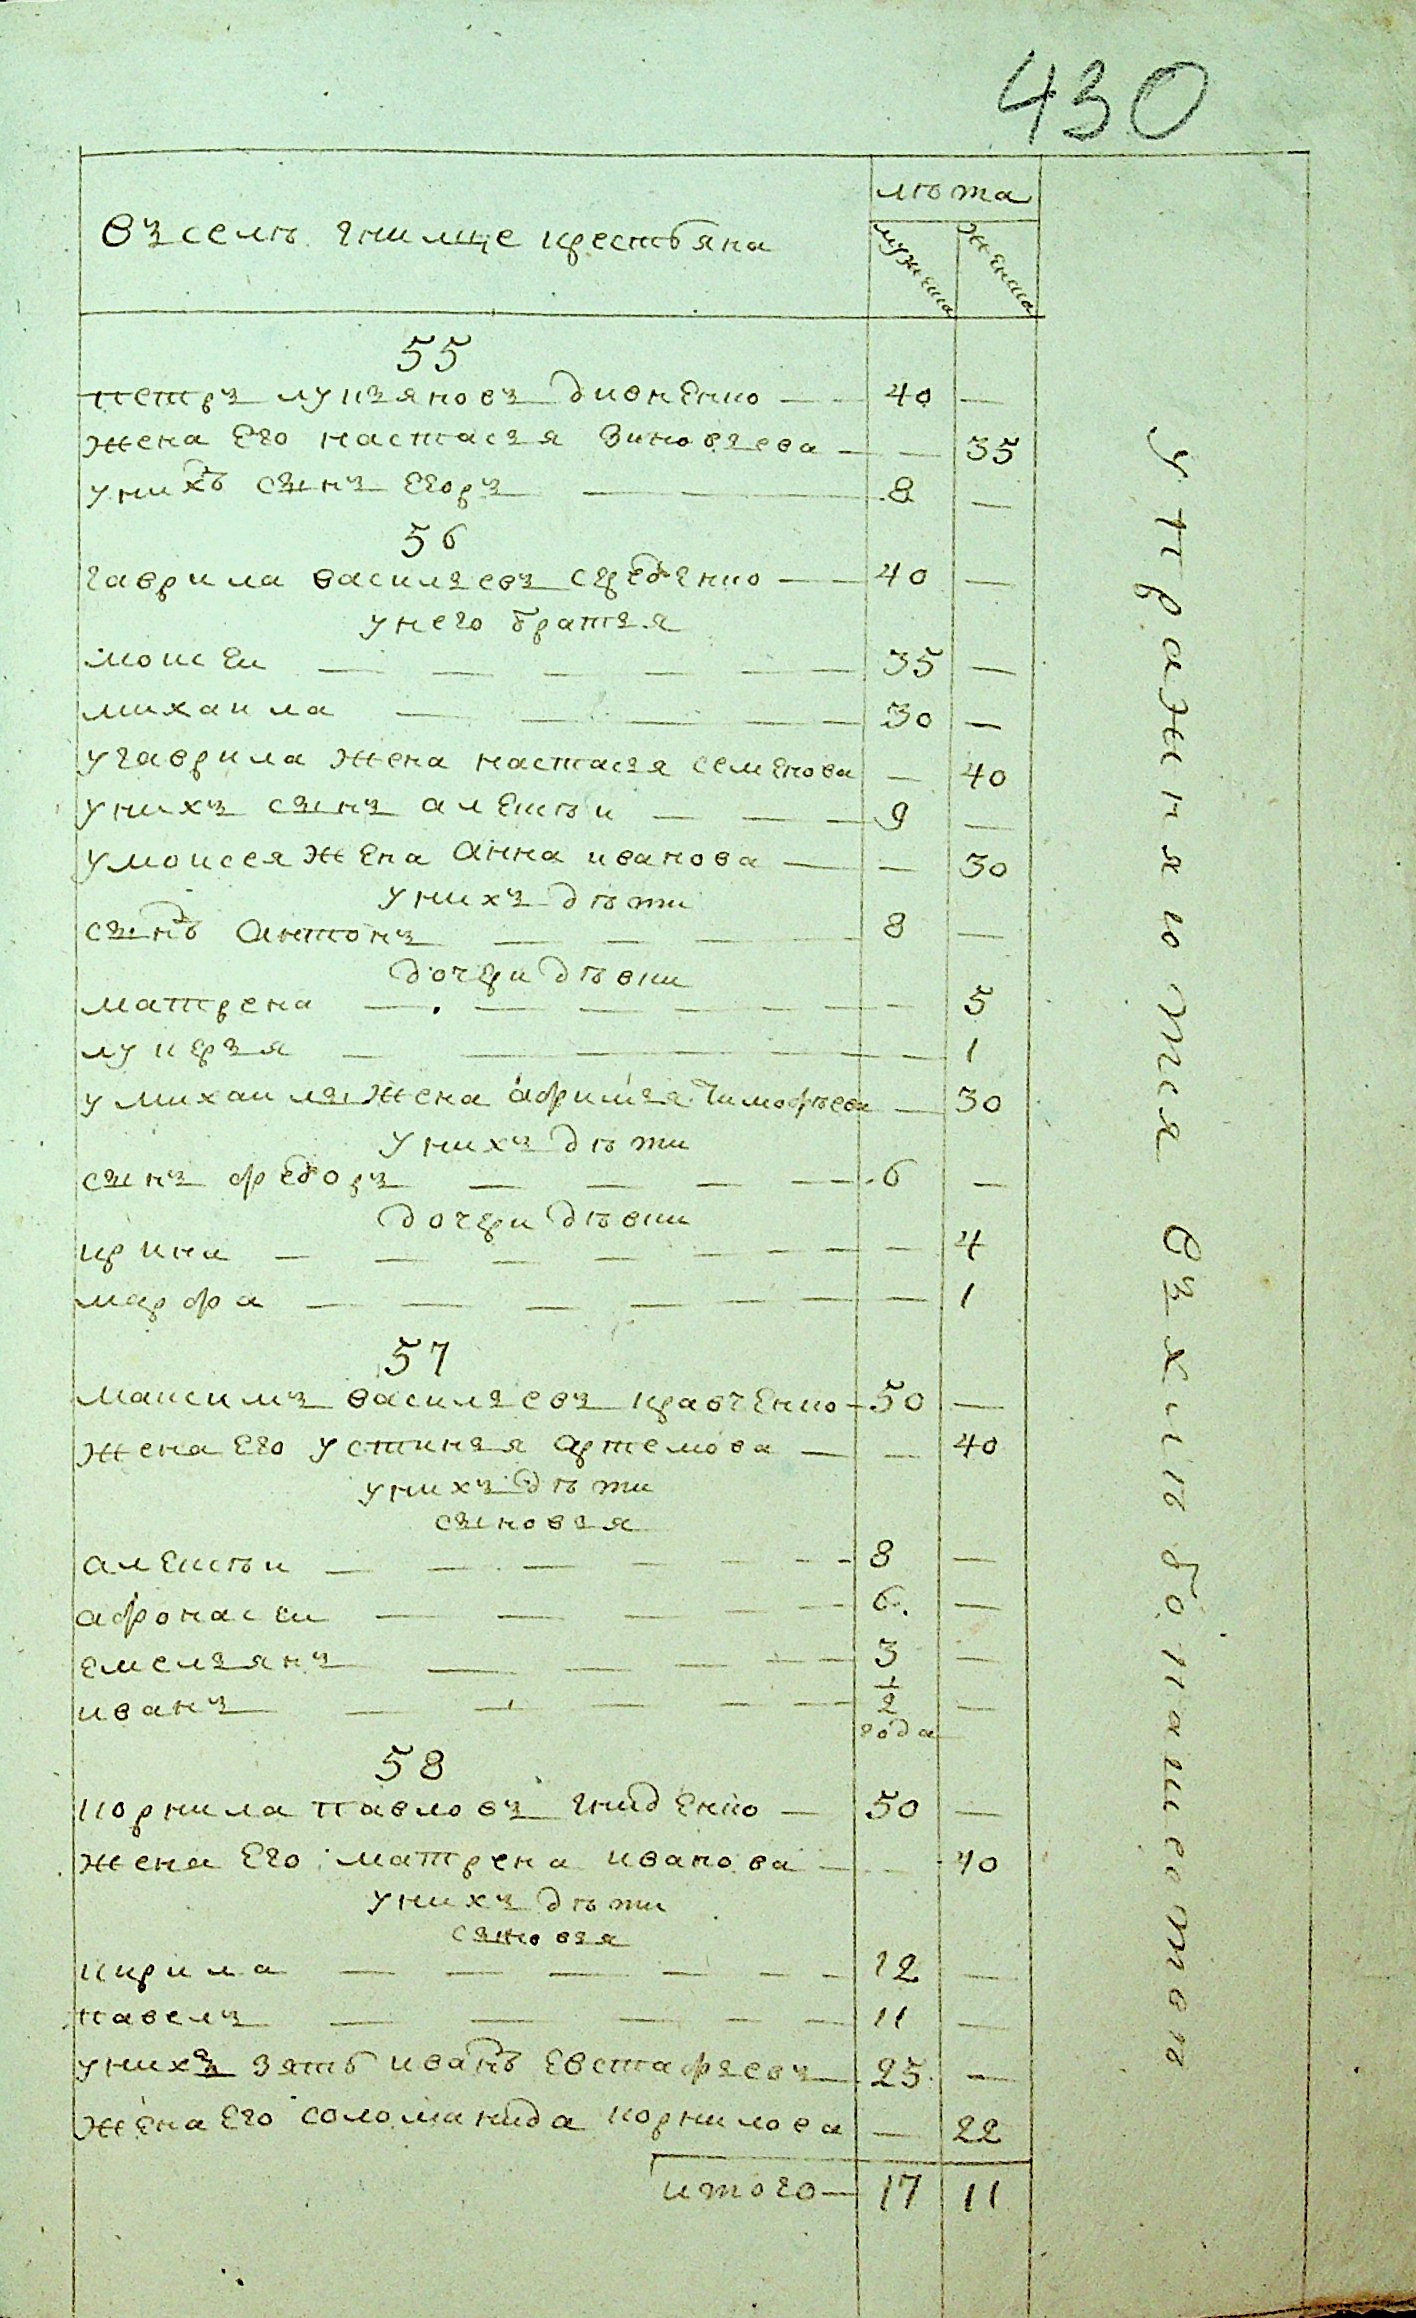 430
лѣта
въ селѣ гнилще крестьяна
мужеска
женска
55
петръ лукъяновъ дивненко — 40 —
жена Его настасъя Зиновъева — — 35
унихъ сынъ Егоръ — 8 —
56
гаврила василъевъ середенко — 40 —
унего братъя
моисеи — 35 —
михаила — 30 —
угаврила жена настасъя семенова — 40
унихъ сынъ алексѣи — 9 —
умоисея жена анна иванова — — 30
унихъ дѣти
сынъ антонъ — 8 —
дочери дѣвки
матрена — — 5
лукеръя — — 1
умихаилы жена афимъя тимофѣева — 30
унихъ дѣти
сынъ федоръ — 6 —
дочери дѣвки
ирина — — 4
марфа — — 1
57
максимъ василъевъ кравченко — 50 —
жена Его устинъя артемова — — 40
унихъ дѣти
сыновъя
алексѣи — 8 —
афонасеи — 6 —
емелъянъ — 3 —
иванъ — 1/2 года —
58
корнила павловъ гниденко — 50 —
жена Его матрена иванова — — 40
унихъ дѣти
сыновъя
кирила — 12 —
павелъ — 11 —
унихъ зять иванъ Евстафъевъ — 25 —
жена Его соломанида корнилова — 22
итого — 17 11
упражняются въ хлѣбопашествѣ